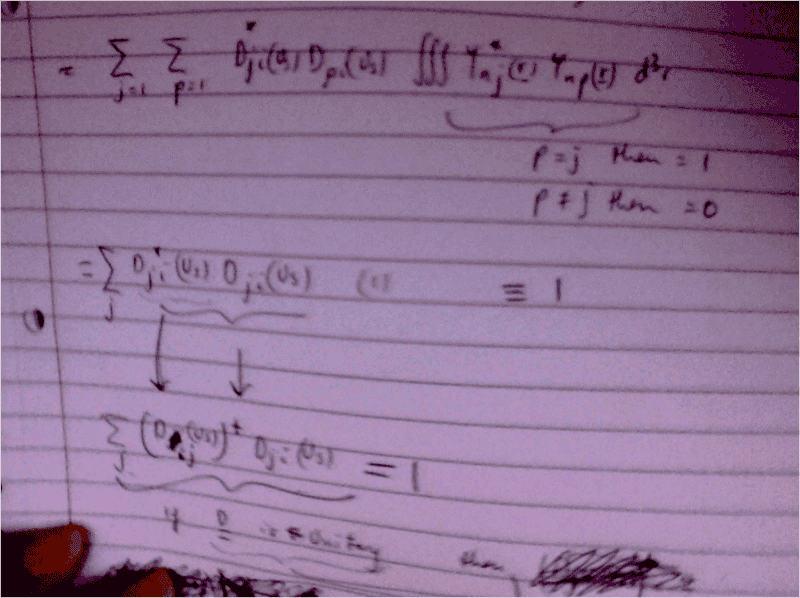 = ∑_{j=1} ∑_{p=1} D*_{ji}(U_s) D_{pi}(U_s) ∭ Ψ*_{nj}(r) Ψ_{np}(r) d³r
p = j then = 1
p ≠ j then = 0
= ∑_j D*_{ji}(U_s) D_{ji}(U_s) (1) ≡ 1
∑_j (D_{ij}(U_s))^‡ D_{ji}(U_s) = 1
if D is unitary then